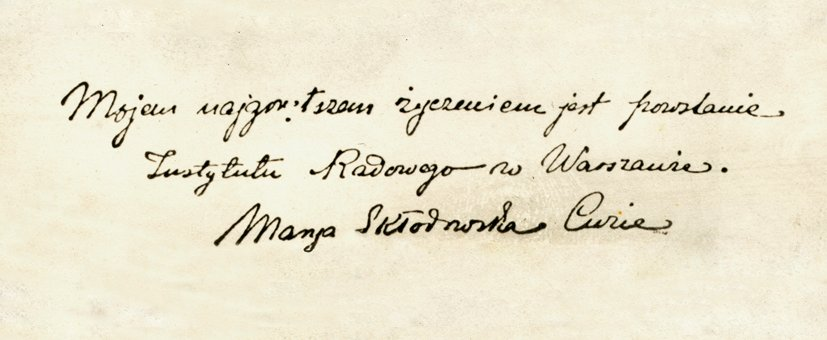 Mojem najgorętszem życzeniem jest powstanie
Instytutu Radowego w Warszawie.
Marja Skłodowska Curie